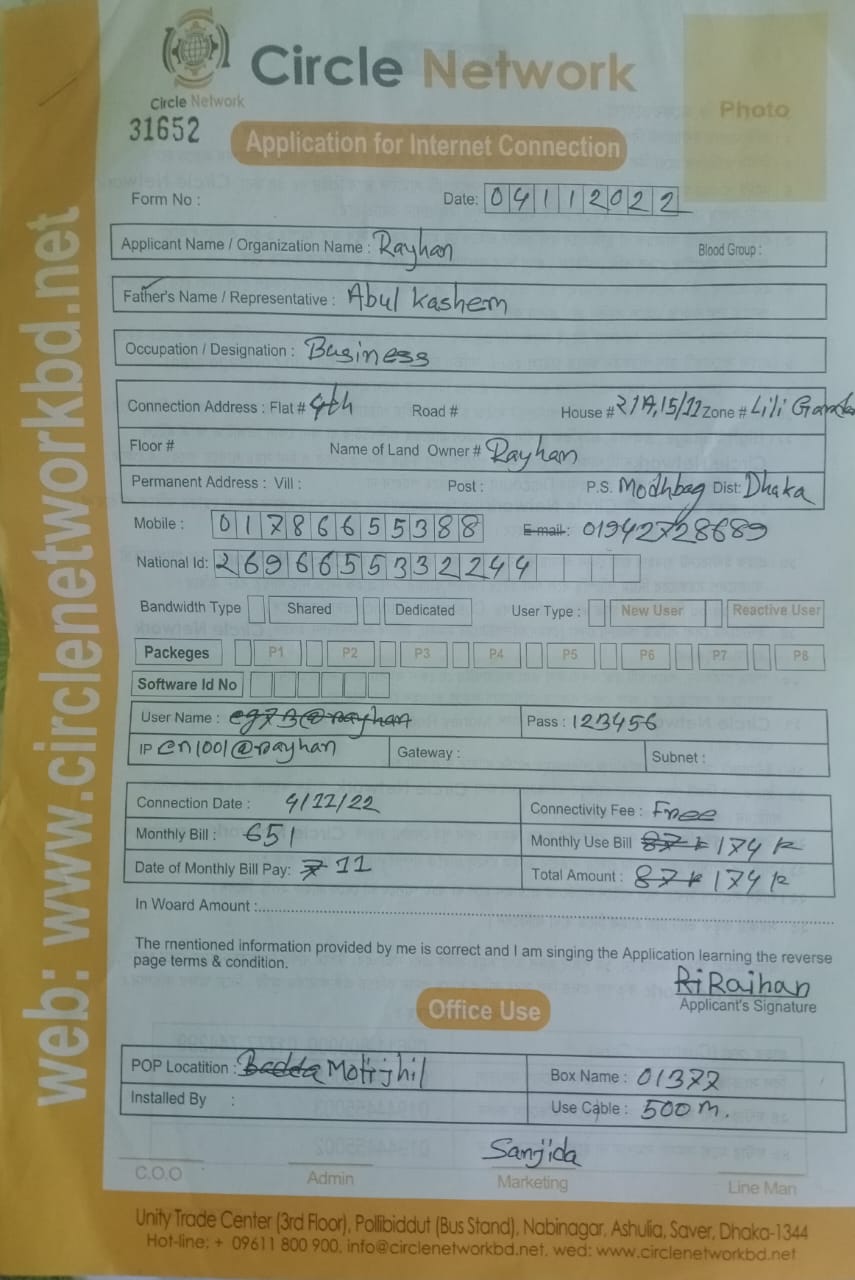 Circle Network
Circle Network
31652
Photo
Application for Internet Connection
Form No : Date: 04112022
Applicant Name / Organization Name : Rayhan Blood Group :
Father's Name / Representative : Abul Kashem
Occupation / Designation : Business
Connection Address : Flat # 4th Road # House # 21A,15/11 Zone # Lili Garde
Floor # Name of Land Owner # Rayhan
Permanent Address : Vill : Post : P.S. Modhbag Dist: Dhaka
Mobile : 01786655388 E-mail : 01942728689
National Id: 2696655332244
Bandwidth Type Shared Dedicated User Type : New User Reactive User
Packeges P1 P2 P3 P4 P5 P6 P7 P8
Software Id No
User Name : eg73@rayhan Pass : 123456
IP cn1001@rayhan Gateway : Subnet :
Connection Date : 4/11/22 Connectivity Fee : Free
Monthly Bill : 651 Monthly Use Bill 87 174
Date of Monthly Bill Pay: 7 11 Total Amount : 87 174
In Woard Amount :
The mentioned information provided by me is correct and I am singing the Application learning the reverse
page terms & condition.
Ri Raihan
Applicant's Signature
Office Use
POP Locatition : Badda Motijhil Box Name : 01377
Installed By : Use Cable : 500 m.
Sanjida
C.O.O Admin Marketing Line Man
Unity Trade Center (3rd Floor), Pollibiddut (Bus Stand), Nabinagar, Ashulia, Saver, Dhaka-1344
Hot-line: + 09611 800 900, info@circlenetworkbd.net, wed: www.circlenetworkbd.net
web: www.circlenetworkbd.net